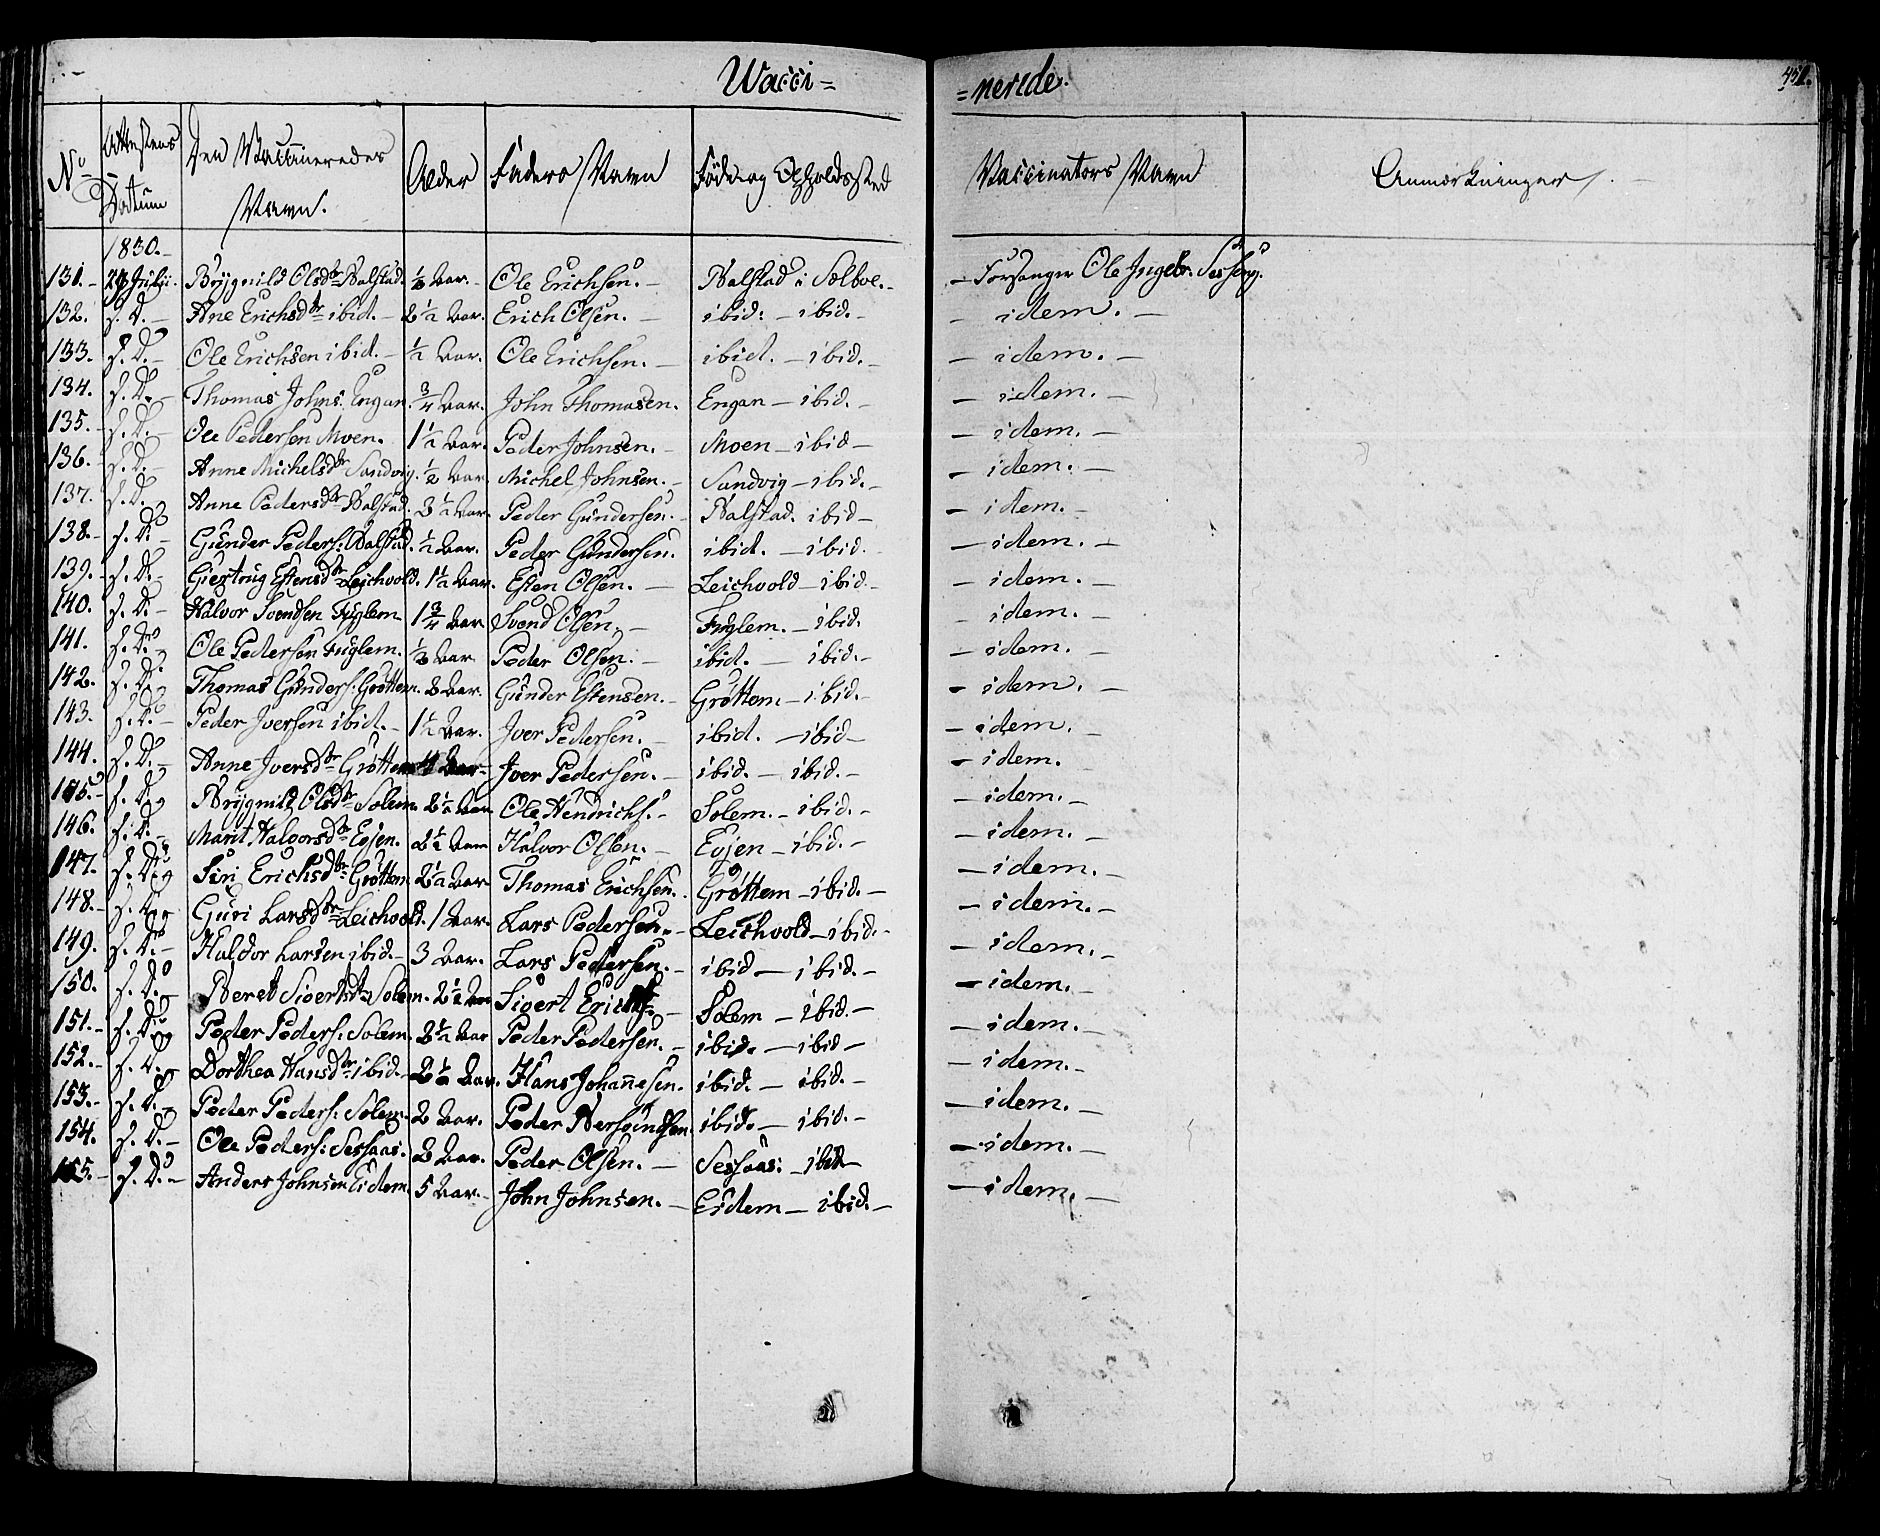 Wacci= =neride. 451.
No Attestens Datum Den Vaccineredes Navn. Alder Faders Navn Föde og Opholdssted Vaccinators Navn Anmærkninger.
1830.
131. Julii. Brÿgnild Olsdtr Balstad. ½ Aar. Ole Erichsen. Balstad i Selboe. Forsanger Ole Ingebr.
132. s. D. Ane Erichsdtr ibid. 2½ Aar. Erich Olsen. ibid: ibid. idem.
133. s. D. Ole Erichsen ibid. ½ Aar. Ole Erichsen. ibid. ibid. idem.
134. s. D. Thomas Johns. Engan. ¾ Aar. John Thomasen. Engan ibid. idem.
135. s. D. Ole Pedersen Moen. 1½ Aar. Peder Johnsen. Moen ibid idem.
136. s. D. Anne Michelsdtr Sandvig. ½ Aar. Michel Johnsen. Sandvig ibid. idem.
137. s. D. Anne Pedersdtr Balstad. 3½ Aar. Peder Gundersen. Balstad. ibid idem.
138. s. D. Gunder Peders: Balstad. ½ Aar. Peder Gundersen. ibid. ibid. idem.
139. s. D. Giertrug Estensdtr Leichvold. 1½ Aar. Esten Olsen. Leichvold ibid. idem.
140. s. D. Halvor Svendsen Fuglem 1¾ Aar Svend Olsen. Fuglem. ibid. idem.
141. s. D. Ole Pedersen Fuglem. ½ Aar. Peder Olsen. ibid. ibid. idem.
142. s. D. Thomas Gunders: Grøttem. 3 Aar. Gunder Estensen. Grøttem ibid. idem.
143. s. D. Peder Iversen ibid. 1½ Aar. Iver Pedersen. ibid. ibid idem.
144. s. D. Anne Iversdtr Grøttem 4 Aar. Iver Pedersen. ibid. ibid. idem.
145. s. D. Brÿgnild Olsdtr Solem 2½ Aar Ole Hendrichs. Solem. ibid. idem.
146. s. D. Marit Halvorsdtr Evjen. 2½ Aar Halvor Olsen. Evjen ibid. idem.
147. s. D. Siri Erichsdtr Grøttem 2½ Aar Thomas Erichsen. Grøttem ibid. idem.
148. s. D. Guri Larsdtr Leichvold. 1 Aar. Lars Pedersen. Leichvold ibid. idem.
149. s. D. Haldor Larsen ibid. 3 Aar. Lars Pedersen. ibid ibid. idem.
150. s. D. Beret Sivertsdtr Solem. 2½ Aar Sivert Erichs. Solem ibid. idem.
151. s. D. Peder Peders: Solem. 2½ Aar Peder Pedersen. ibid. ibid idem.
152. s. D. Dorthea Hansdtr ibid. 2½ Aar. Hans Johannesen. ibid. ibid. idem.
153. s. D. Peder Peders: Solem. 2 Aar. Peder ibid. ibid. idem.
154. s. D. Ole Peders: Sessaas. 3 Aar. Peder Olsen. Sessaas: ibid idem.
155. s. D. Anders Johnsen Eidem. 5 Aar. John Johnsen. Eidem ibid. idem.